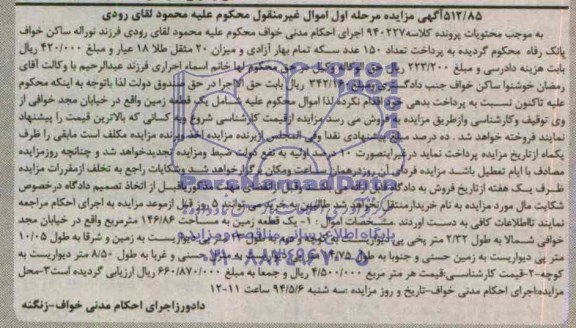 ۵۱۲/۸۵آگهی مزایده مرحله اول اموال غیرمنقول محکوم علیه محمود لقای رودی
به موجب محتویات پرونده کلاسه۹۴۰۲۲۷ اجرای احکام مدنی خواف محکوم علیه محمود لقای رودی فرزند نوراله ساکن خواف
بانک رفاه محکوم گردیده به پرداخت تعداد ۱۵۰ عدد سکه تمام بهار آزادی و میزان ۲۰ مثقل طلا ۱۸ عیار و مبلغ ۴۲۰/۰۰۰ ریال
بابت هزینه دادرسی و مبلغ ۲۲۳/۲۰۰ ریال حق وکیل در حق محکوم لها خانم اسماء احراری فرزند عبدالرحیم با وکالت آقای
رمضان خوشنوا ساکن خواف جنب دادگستری ومبلغ ریال بابت حق الاجرا در حق صندوق دولت لذا باتوجه به اینکه محکوم
علیه تاکنون نسبت به پرداخت بدهی خود اقدام نکرده لذا اموال محکوم علیه شامل یک قطعه زمین واقع در خیابان مجد خوافی از
وی توقیف وکارشناسی وازطریق مزایده به فروش می رسد مزایده ازقیمت کارشناسی شروع وبه کسانی که بالاترین قیمت را پیشنهاد
نمایند فروخته خواهد شد . ده درصد مبلغ پیشنهادی نقدا وفی المجلس ازبرنده مزایده اخذ وبرنده مزایده مکلف است مابقی را ظرف
یکماه ازتاریخ مزایده پرداخت نماید درغیراینصورت ۱۰ درصد اولیه به نفع دولت ضبط ومزایده تجدیدخواهد شد و چنانچه روزمزایده
مصادف با ایام تعطیل باشد مزایده فردای آن روزدرهمان ساعت ومکان برگزارخواهد شد وشکایات راجع به تخلف ازمقررات مزایده
ظرف یک هفته ازتاریخ فروش به دادگاه
شکایت مال مورد مزایده به نام خریدارمنتقل نخواهد شد طالبین به خرید می توانند ۵ روز قبل ازموعد مزایده به اجرای احکام مراجعه
نمایند تااطلاعات کافی به دست اوردند مشخصات اموال : ۱- یک قطعه زمین به مساحت ۱۴۶/۸۶ مترمربع واقع در خیابان مجد
خوافی شمالا به طول ۲/۳۲ متر پخی پی دیواریست به کوچه ودوم به طول متر پی دیواریست به زمین و شرقا به طول ۱۰/۰۵
متر پی دیواریست به زمین حسنی و جنوبا به طول ۱۴/۷۵ به زمین حسنی و غربا به طول ۸/۵۰ متر دیواریست به
کوچه-۲-قیمت کارشناسی:قیمت هر متر مربع ۴/۵۰۰/۰۰۰ ریال و جمعا به مبلغ ۶۶۰/۸۷۰/۰۰۰ ریال ارزیابی گردیده است۳-محل
مزایده:اجرای احکام مدنی خواف-تاریخ و روز مزایده :سه شنبه ۹۴/۵/۶ ساعت ۱۱-۱۲
دادورزاجرای احکام مدنی خواف-زنگنه
ParsNamadData
پایگاه اطلاع رسانی مناقصه و مزایده
۰۲۱-۸۸۳۴۹۶۷۰-۵